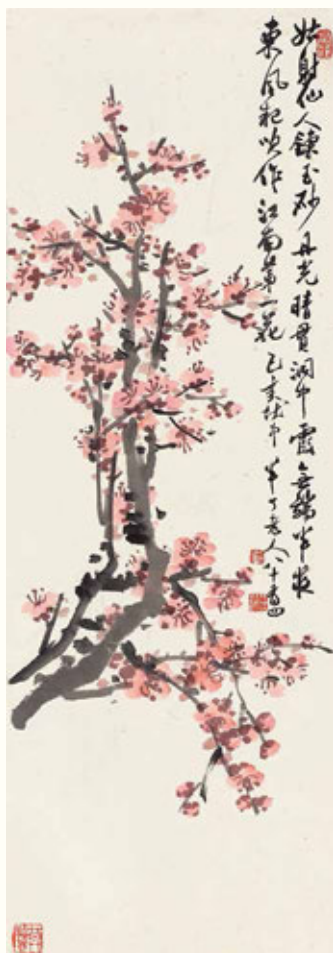 姑射仙人鍊玉砂丹光晴貫洞中霞無端半夜
東風起吹作江南第一花 己亥伏中 半丁老人八十有四